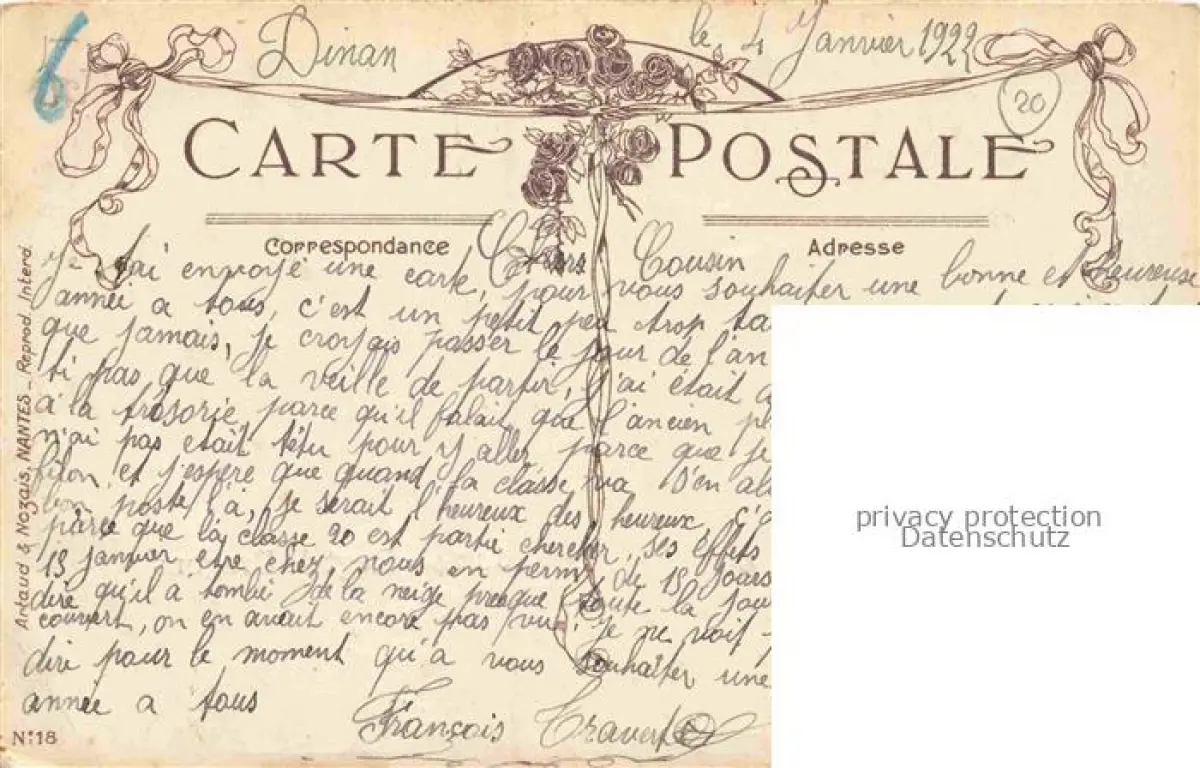 Dinan le 4 Janvier 1922
20
6
CARTE POSTALE
Correspondance Adresse
Chers Cousin
J'ai envoyé une carte, pour vous souhaiter une bonne et heureuse
année a tous, c'est un petit peu trop
que jamais, je croyais passer le jour de l'an
ti pas que la veille de partir, j'ai était
à la trésorie parce qu'il falait que l'ancien
n'ai pas etait têtu pour y aller parce que je
filon et j'espère que quand la classe va s'en
bon poste là, je serait l'heureux des heureux,
parce que la classe 20 est partie chercher ses effets
13 janvier etre chez nous en perm de 15 jours
dire qu'il a tombé de la neige presque toute la
couvert, on en avait encore pas vu. Je ne voit
dire pour le moment qu'a vous souhaiter une
année a tous
François
Artaud & Nozais, NANTES - Reprod. Interd.
N°18
privacy protection
Datenschutz